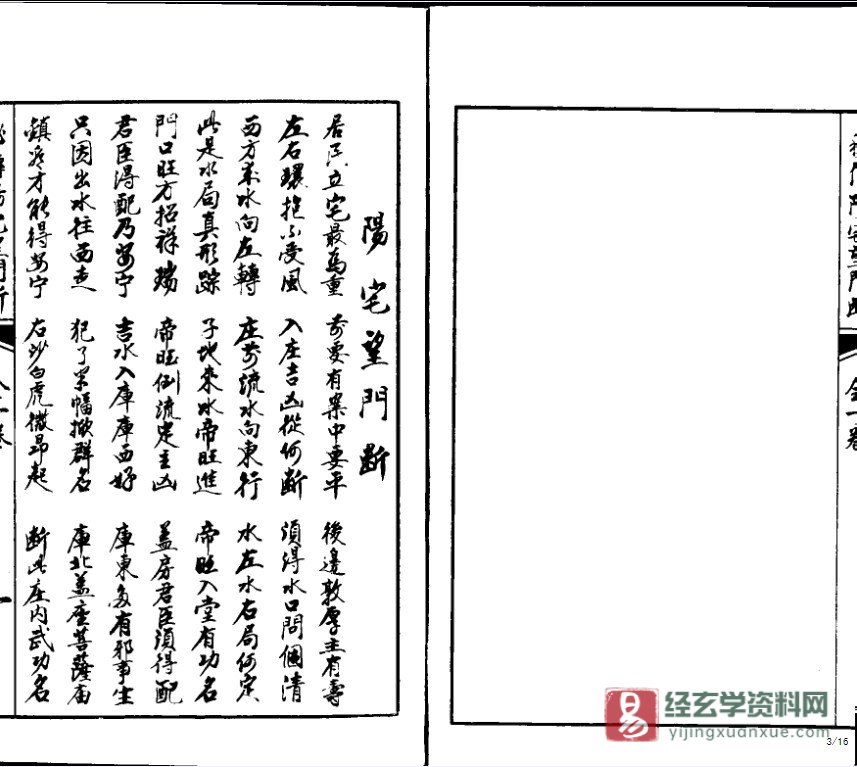 陽宅望門断
居民立宅最為重 前要有案中要平 後邊敦厚主有壽
左右環抱不受風 入庄吉凶從何断 須得水口問個清
西方来水向左轉 庄前流水向東行 水左水右局何定
此是水局真形踪 子地來水帝旺進 帝旺入堂有功名
門口旺方招祥瑞 帝旺倒流定主凶 盖房君臣須得配
君臣得配乃安宁 吉水入庫庫西好 庫東多有邪事生
只因出水往西走 犯了 群名 庫北盖座菩薩庙
鎮 才能得安宁 右沙白虎微昂起 断此庄内武功名
一
全一卷
易 经玄学资料网
yijingxuanxue.com
3/16